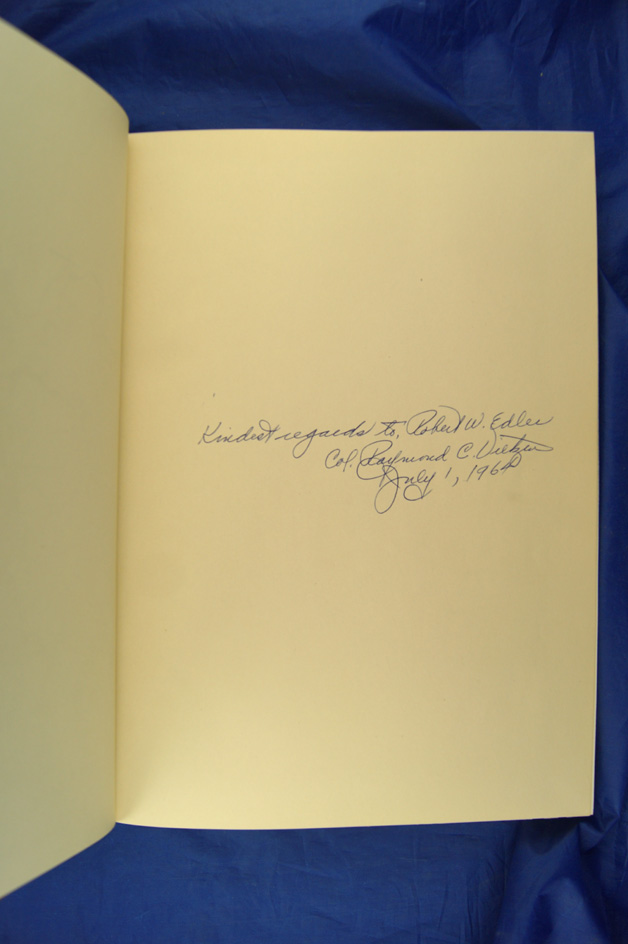 Kindest regards to, Robert W. Edler
Col. Raymond C. Vietzen
July 1, 1964